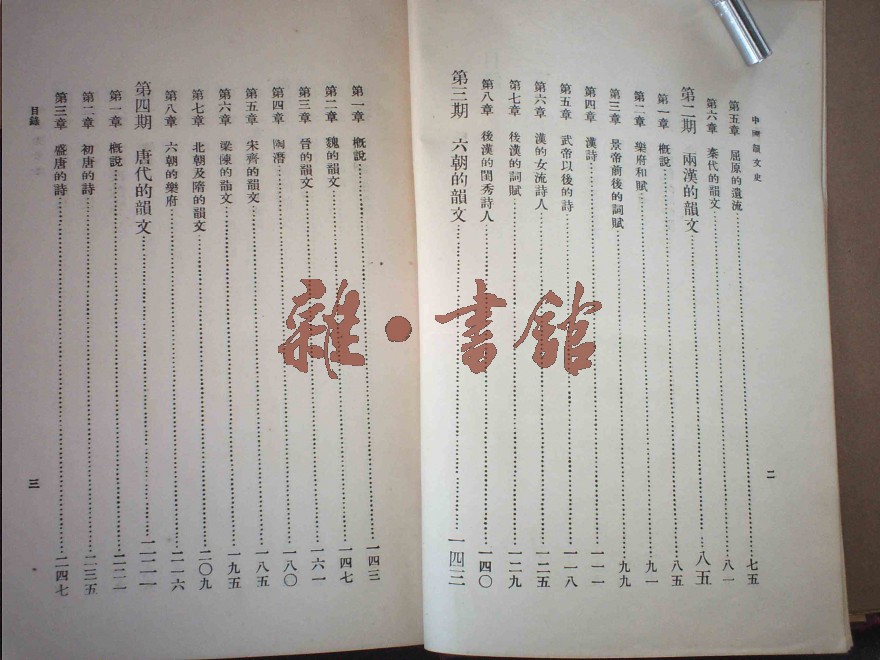 中國韻文史
第五章 屈原的遺流 七五
第六章 秦代的韻文 八一
第二期 兩漢的韻文 八五
第一章 概說 八五
第二章 樂府和賦 九一
第三章 景帝前後的詞賦 九九
第四章 漢詩 一一一
第五章 武帝以後的詩 一一八
第六章 漢的女流詩人 一二五
第七章 後漢的詞賦 一二九
第八章 後漢的閨秀詩人 一四〇
第三期 六朝的韻文 一四三
二
第一章 概說 一四三
第二章 魏的韻文 一四七
第三章 晉的韻文 一六一
第四章 陶潛 一八〇
第五章 宋齊的韻文 一八五
第六章 梁陳的韻文 一九五
第七章 北朝及隋的韻文 二〇九
第八章 六朝的樂府 二一六
第四期 唐代的韻文 二二一
第一章 概說 二二一
第二章 初唐的詩 二三五
第三章 盛唐的詩 二四七
目錄
三
雜·書館